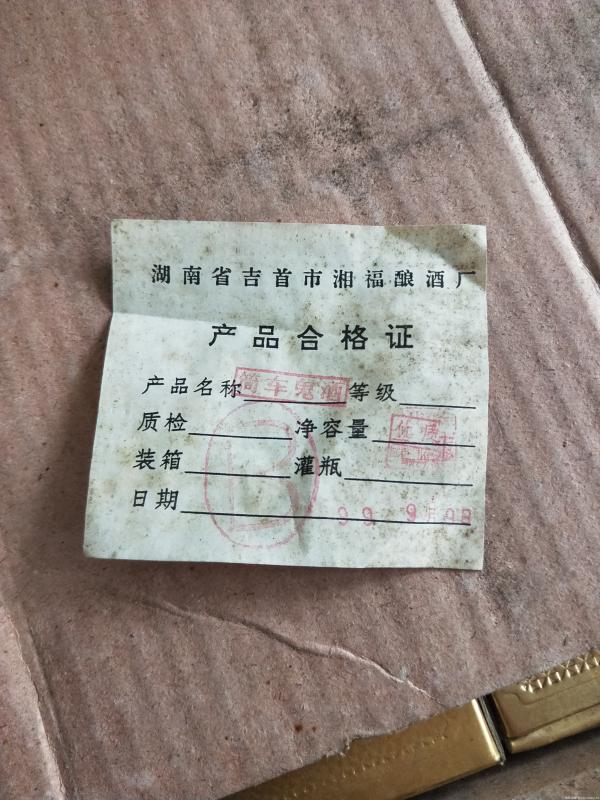 湖南省吉首市湘福酿酒厂
产品合格证
产品名称 筒车鬼酒 等级
质检 净容量
装箱 灌瓶
日期 99 9
B